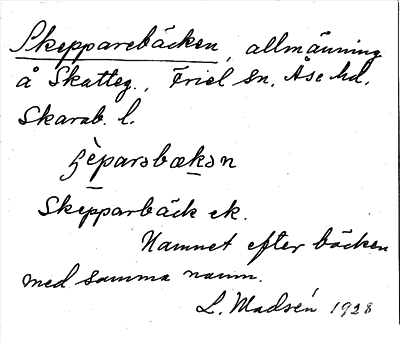 Skepparebäcken, allmänning
å Skatteg., Friel sn, Åse hd.
Skarab. l.
ʃèparsbækən
Skepparbäck ek.
Namnet efter bäcken
med samma namn.
L. Madsén 1928